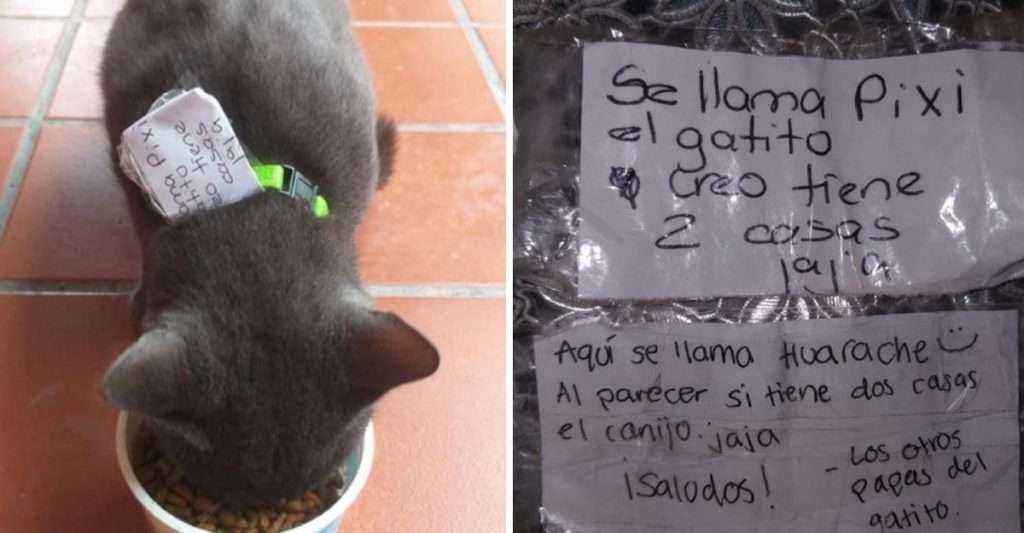 ama Pixi
atito
reo tiene
casas
jaja
Se llama Pixi
el gatito
y Creo tiene
2 casas
jaja
Aquí se llama Huarache
Al parecer si tiene dos casas
el canijo. jaja
¡Saludos!
- Los otros
papas del
gatito.